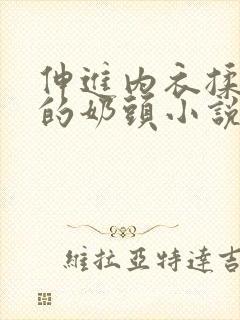 伸進內衣揉
的奶頭小說
維拉亞特達吉